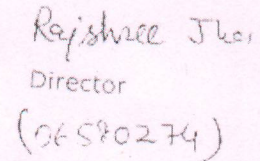 Rajshree Jha
Director
(06580274)